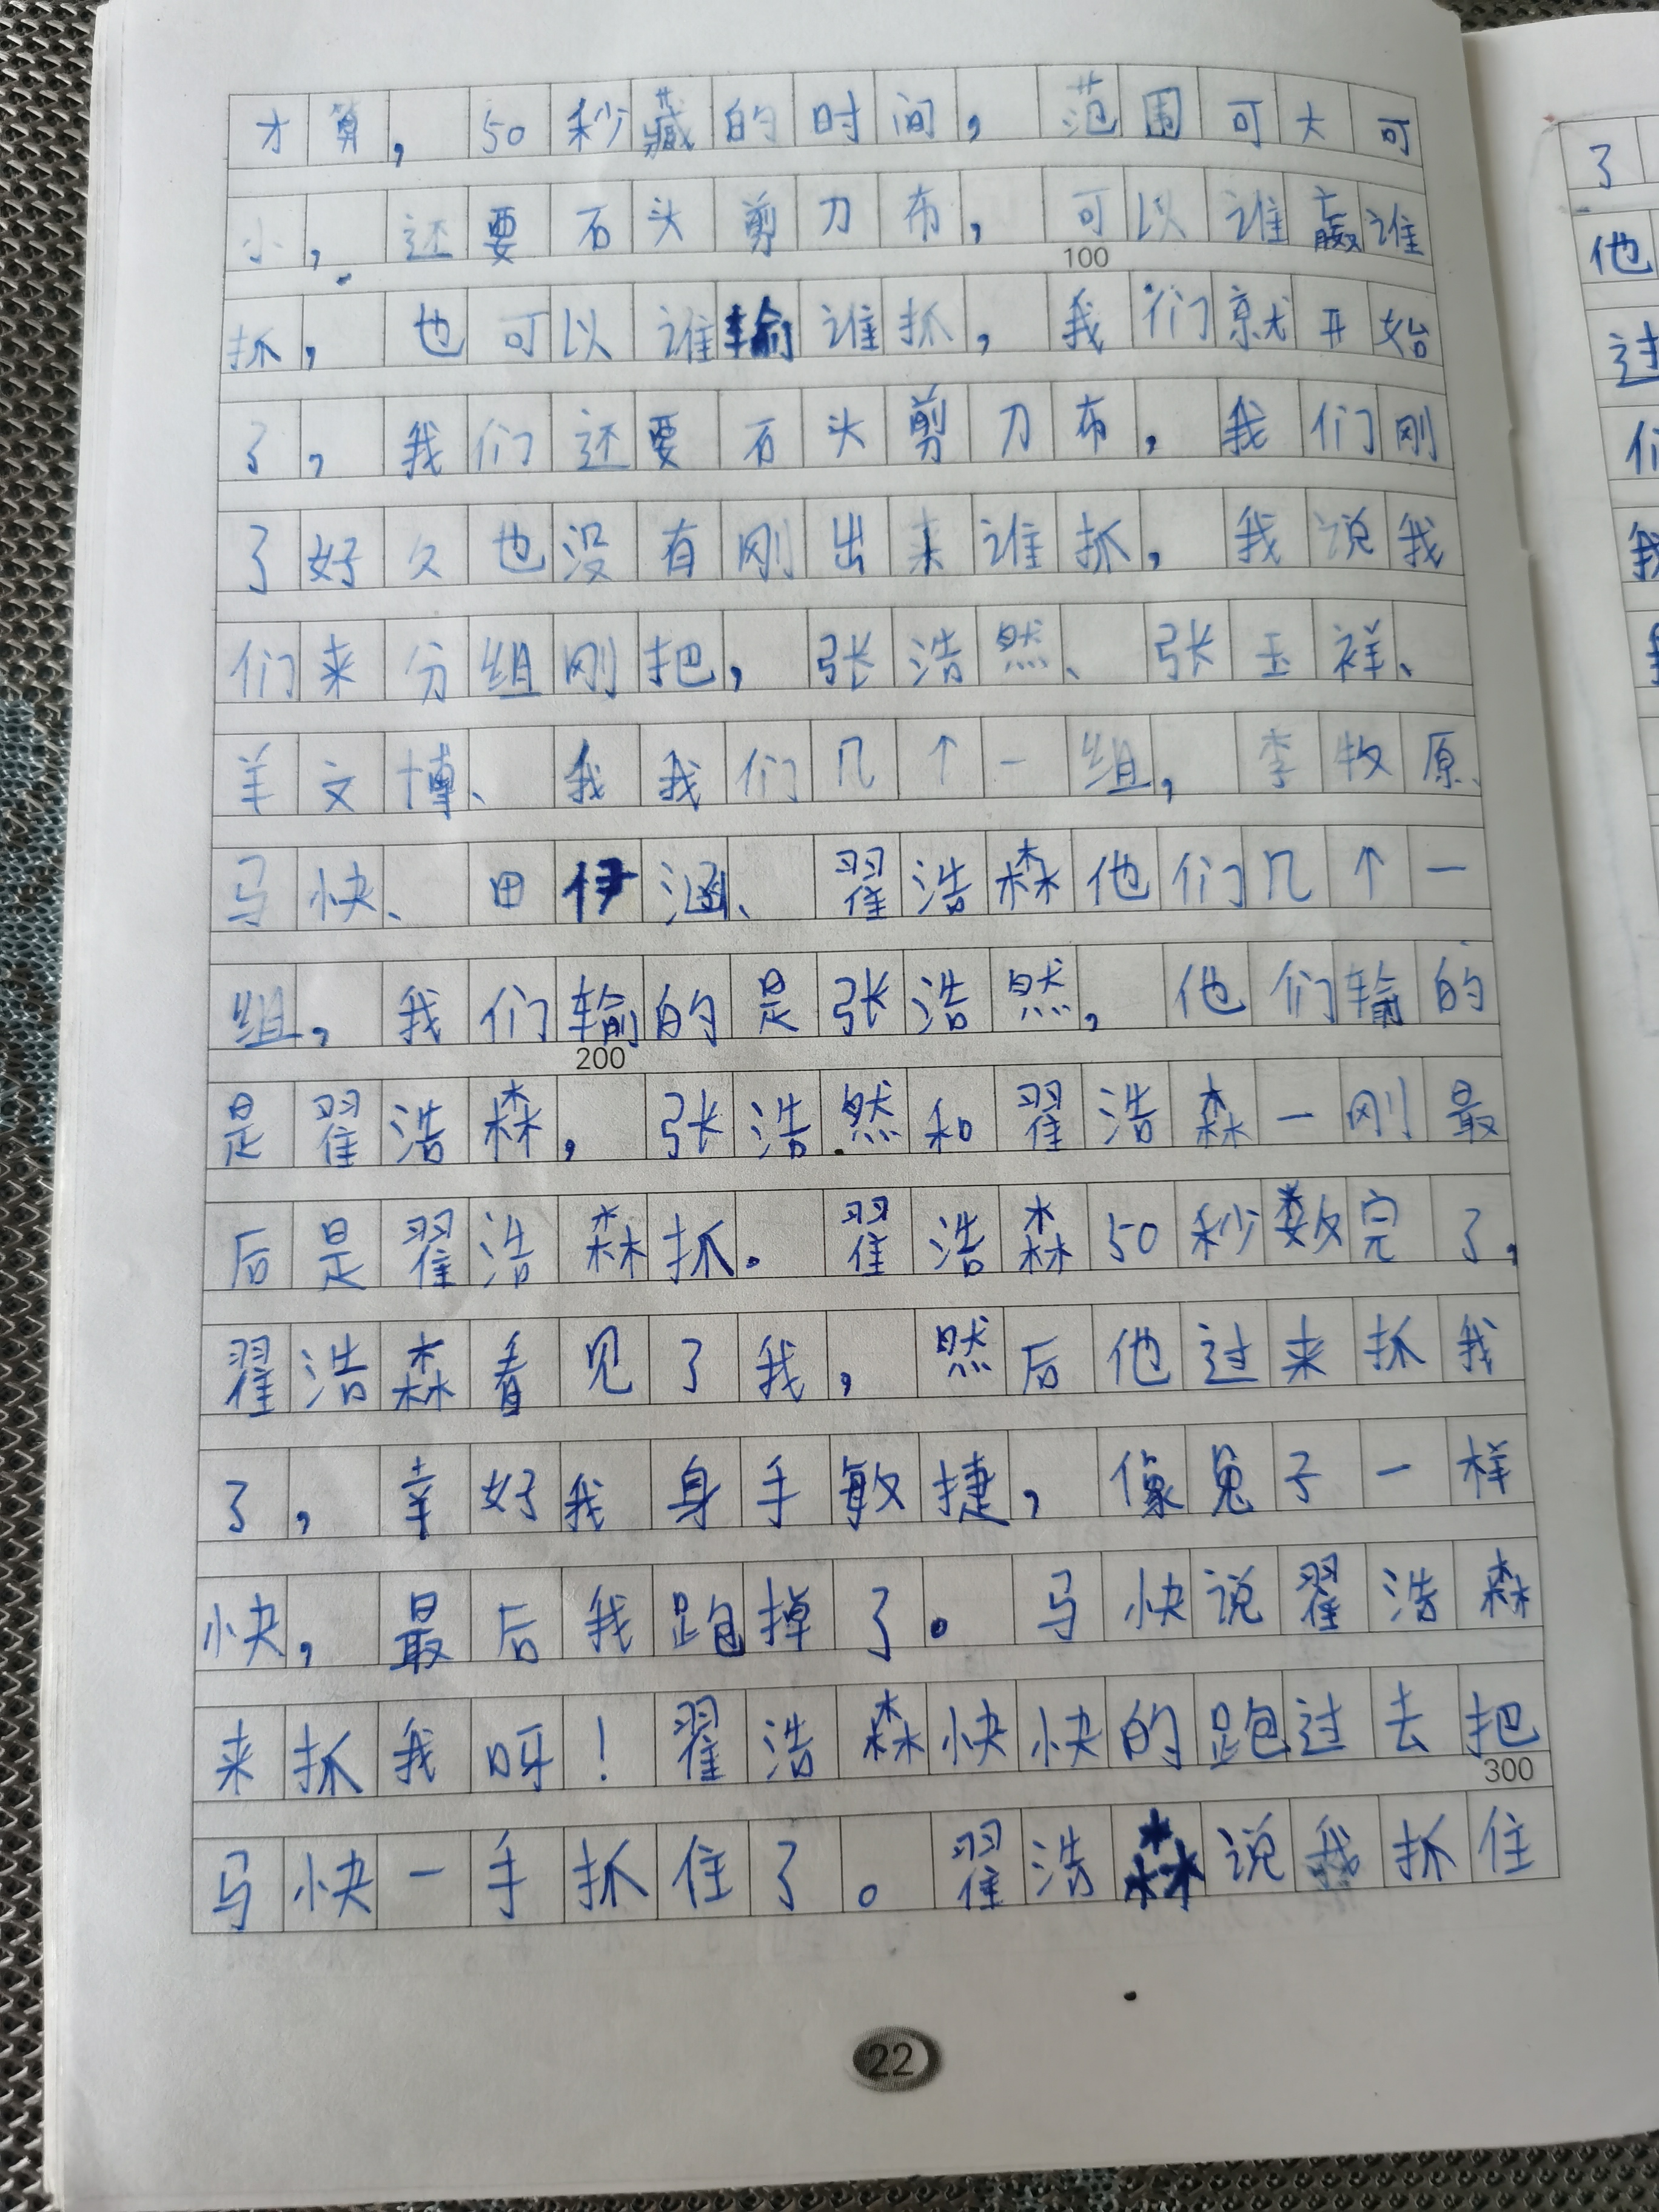 才算，50秒藏的时间，范围可大可
小，还要石头剪刀布，可以谁赢谁
100
抓，也可以谁输谁抓，我们就开始
了，我们还要石头剪刀布，我们刚
了好久也没有刚出来谁抓，我说我
们来分组刚把，张浩然、张玉祥、
羊文博、我我们几个一组，李牧原、
马快、田伊涵、翟浩森他们几个一
组，我们输的是张浩然，他们输的
200
是翟浩森，张浩然和翟浩森一刚最
后是翟浩森抓。翟浩森50秒数完了，
翟浩森看见了我，然后他过来抓我
了，幸好我身手敏捷，像兔子一样
快，最后我跑掉了。马快说翟浩森
来抓我呀！翟浩森快快的跑过去把
300
马快一手抓住了。翟浩森说我抓住
22
了
他
过
们
我